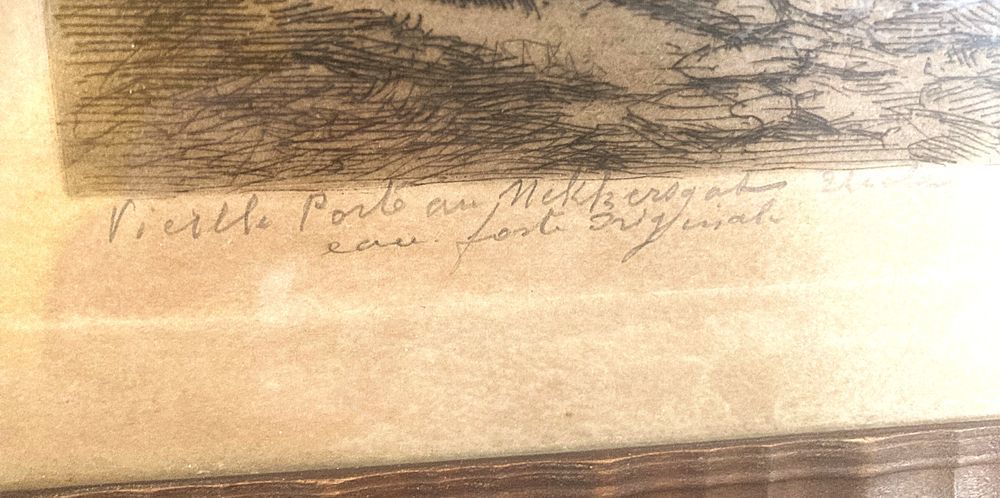 Vieille Porte au Nekkersgat
eau forte originale